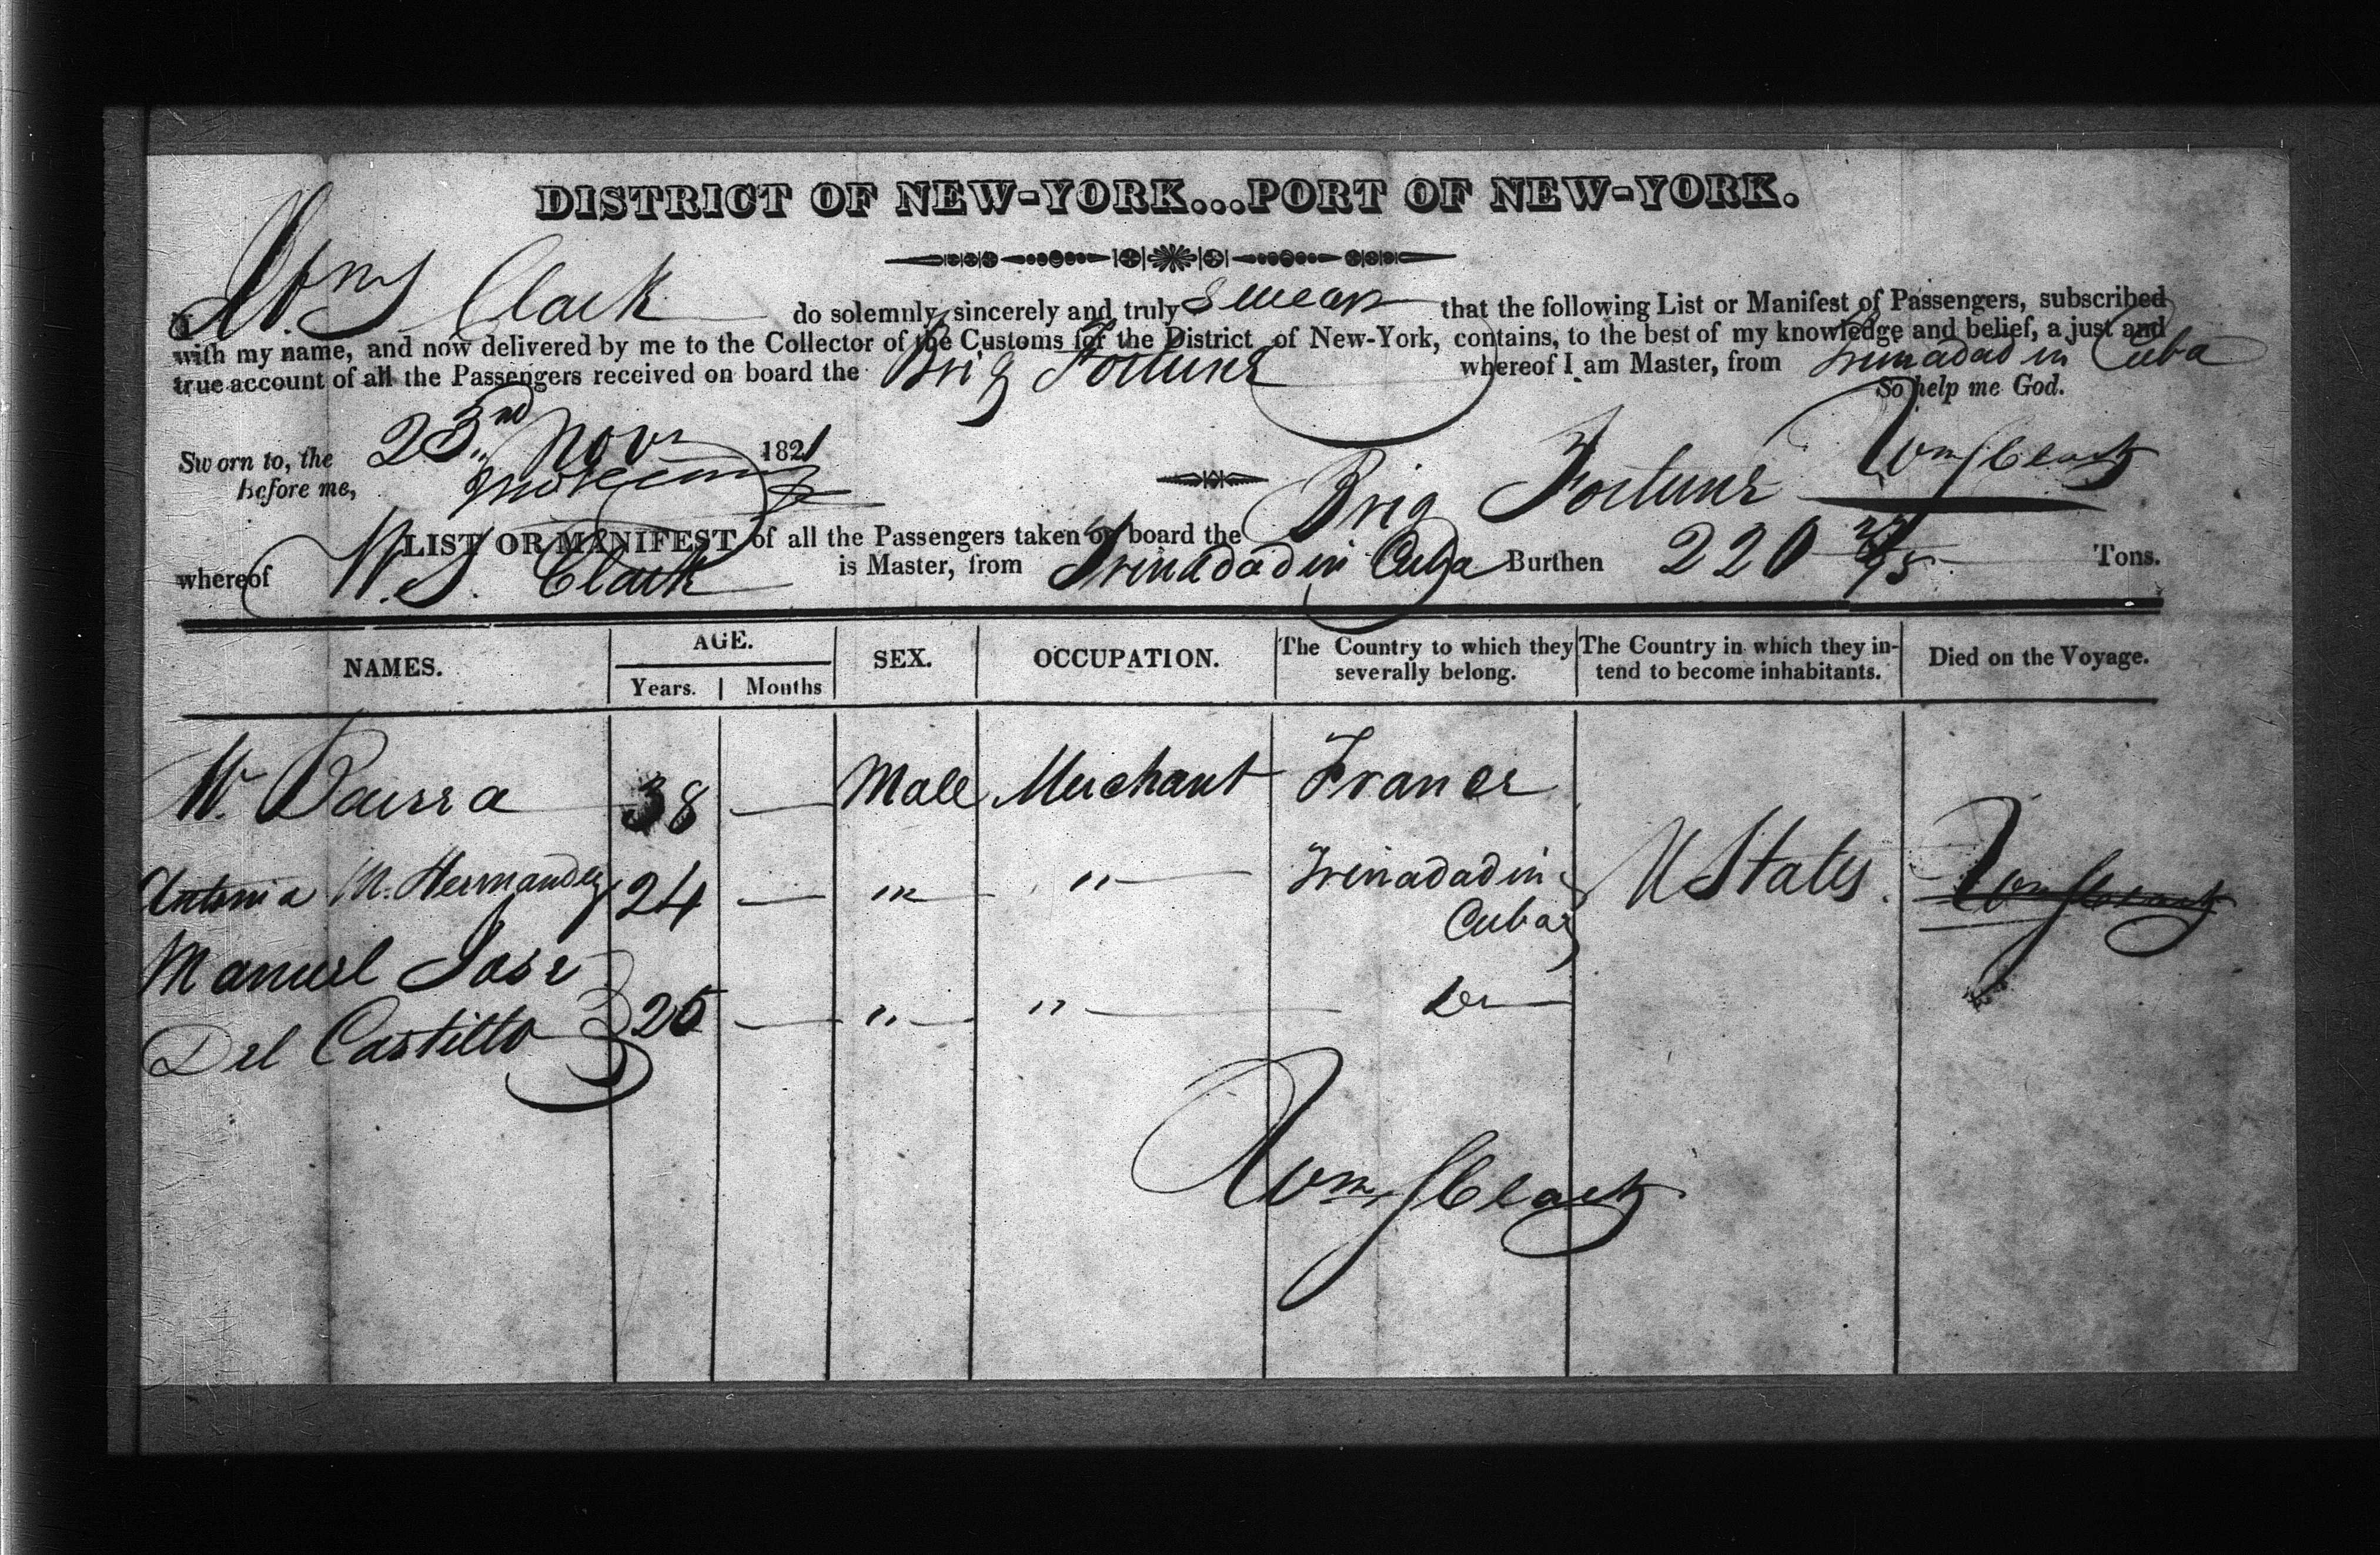 DISTRICT OF NEW-YORK...PORT OF NEW-YORK.
I Wm S Clark do solemnly, sincerely and truly Swear that the following List or Manifest of Passengers, subscribed
with my name, and now delivered by me to the Collector of the Customs for the District of New-York, contains, to the best of my knowledge and belief, a just and
true account of all the Passengers received on board the Brig Fortune whereof I am Master, from Trinadad in Cuba
So help me God.
Sworn to, the 23rd Novr 1821
before me,
Wm S Clark
LIST OR MANIFEST of all the Passengers taken on board the Brig Fortune
whereof W. S. Clark is Master, from Trinadad in Cuba Burthen 220 /95 Tons.
NAMES. AGE. SEX. OCCUPATION. The Country to which they severally belong. The Country in which they intend to become inhabitants. Died on the Voyage.
Years. Months
38 — Male Merchant France
Antonia M. Hernandez 24 — " " Trinadad in
Cuba
U States.
Wm S Clark
Manuel Jose
Del Castillo 25 — " " Do
Wm S Clark